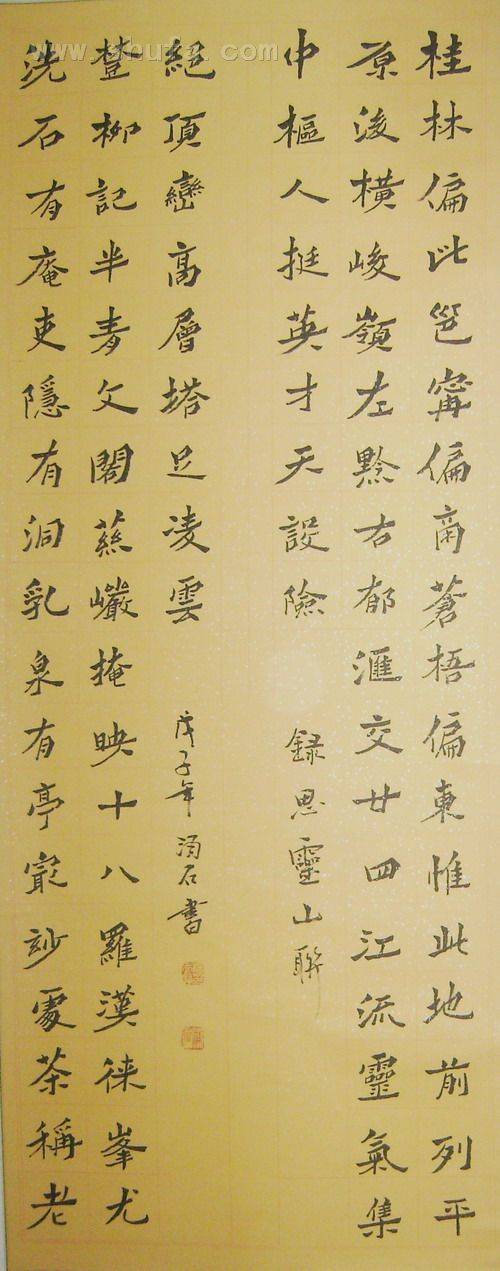 www.shufa.com
桂林偏北邕寧偏南蒼梧偏東惟此地前列平
原後橫峻嶺左黔右郁滙交廿四江流靈氣集
中樞人挺英才天設險
錄思靈山聯
洗石有庵吏隱有洞乳泉有亭㝡妙處茶稱老
樹柳記半青文閣慈巖掩映十八羅漢徠峯尤
絕頂巒高層塔足凌雲
戊子年 石書